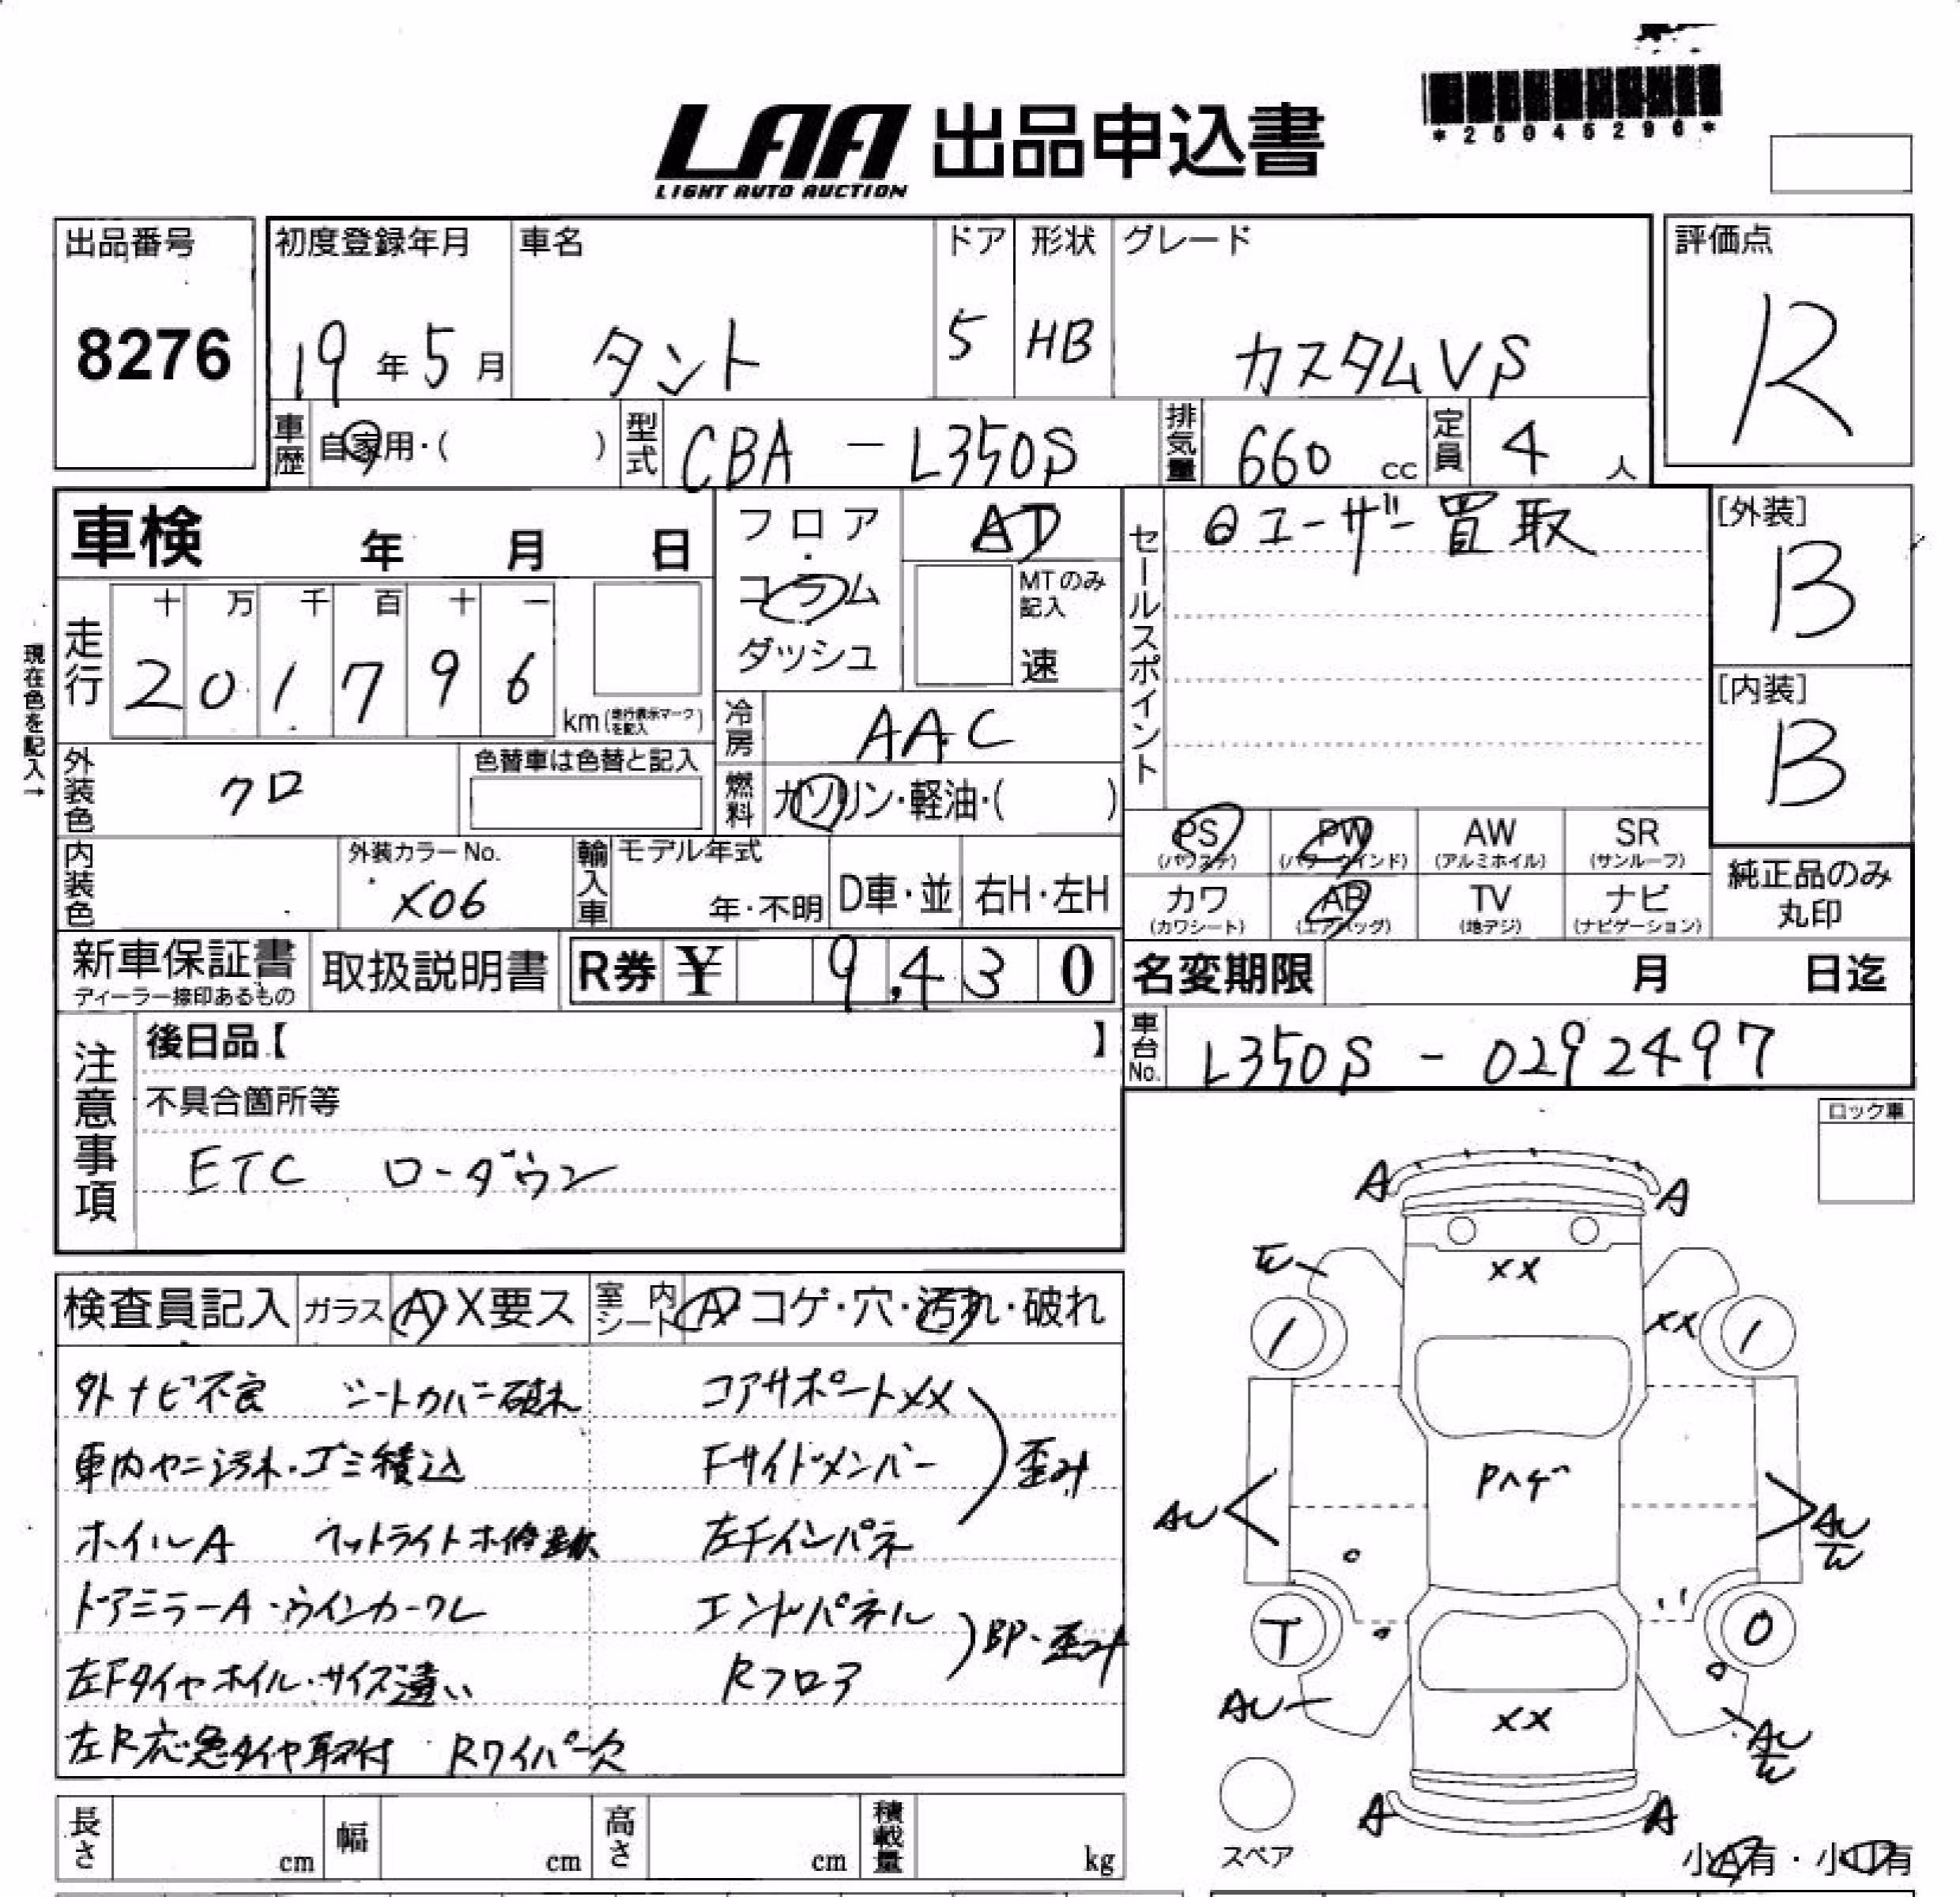 *25045296*
LAA 出品申込書
LIGHT AUTO AUCTION
出品番号
8276
初度登録年月 車名 ドア 形状 グレード 評価点
19年5月 タント 5 HB カスタムVS R
車歴 自家用・( ) 型式 CBA-L350S 排気量 660cc 定員 4人
車検 年 月 日
フロア・コラム ダッシュ
AT
MTのみ記入
速
セールスポイント
ユーザー買取
[外装]
B
[内装]
B
現在色を記入→
走行
十 万 千 百 十 一
2 0 1 7 9 6
km(走行表示マークを記入)
冷房 AAC
燃料 ガソリン・軽油・( )
外装色 クロ
色替車は色替と記入
内装色
外装カラーNo.
X06
輸入車 モデル年式
年・不明 D車・並 右H・左H
PS AW SR
(パワステ) (アルミホイル) (サンルーフ)
PW
(パワーウインド)
カワ AB TV ナビ
(カワシート) (エアバッグ) (地デジ) (ナビゲーション)
純正品のみ
丸印
新車保証書
ディーラー捺印あるもの
取扱説明書
R券 ¥ 9,430
名変期限 月 日迄
車台No. L350S-0292497
注意事項
後日品【 】
不具合箇所等
ETC ローダウン
ロック車
検査員記入 ガラス A X要ス 室内シート A・コゲ・穴・汚れ・破れ
外ナビ不良 シートカバー破れ コアサポートXX
車内ヤニ汚れ・ゴミ積込 Fサイドメンバー 歪み
ホイルA ヘットライト 左Fインパネ
ドアミラーA・ウインカーワレ エンドパネル
BP・歪み
左Fタイヤホイル・サイズ違い Rフロア
左R応急タイヤ取付 Rワイパー欠
A A
XX
XX
Pハゲ
AU
AU
T
AU
XX
AU
A A
スペア
長さ cm 幅 cm 高さ cm 積載量 kg
小A有・小凹有